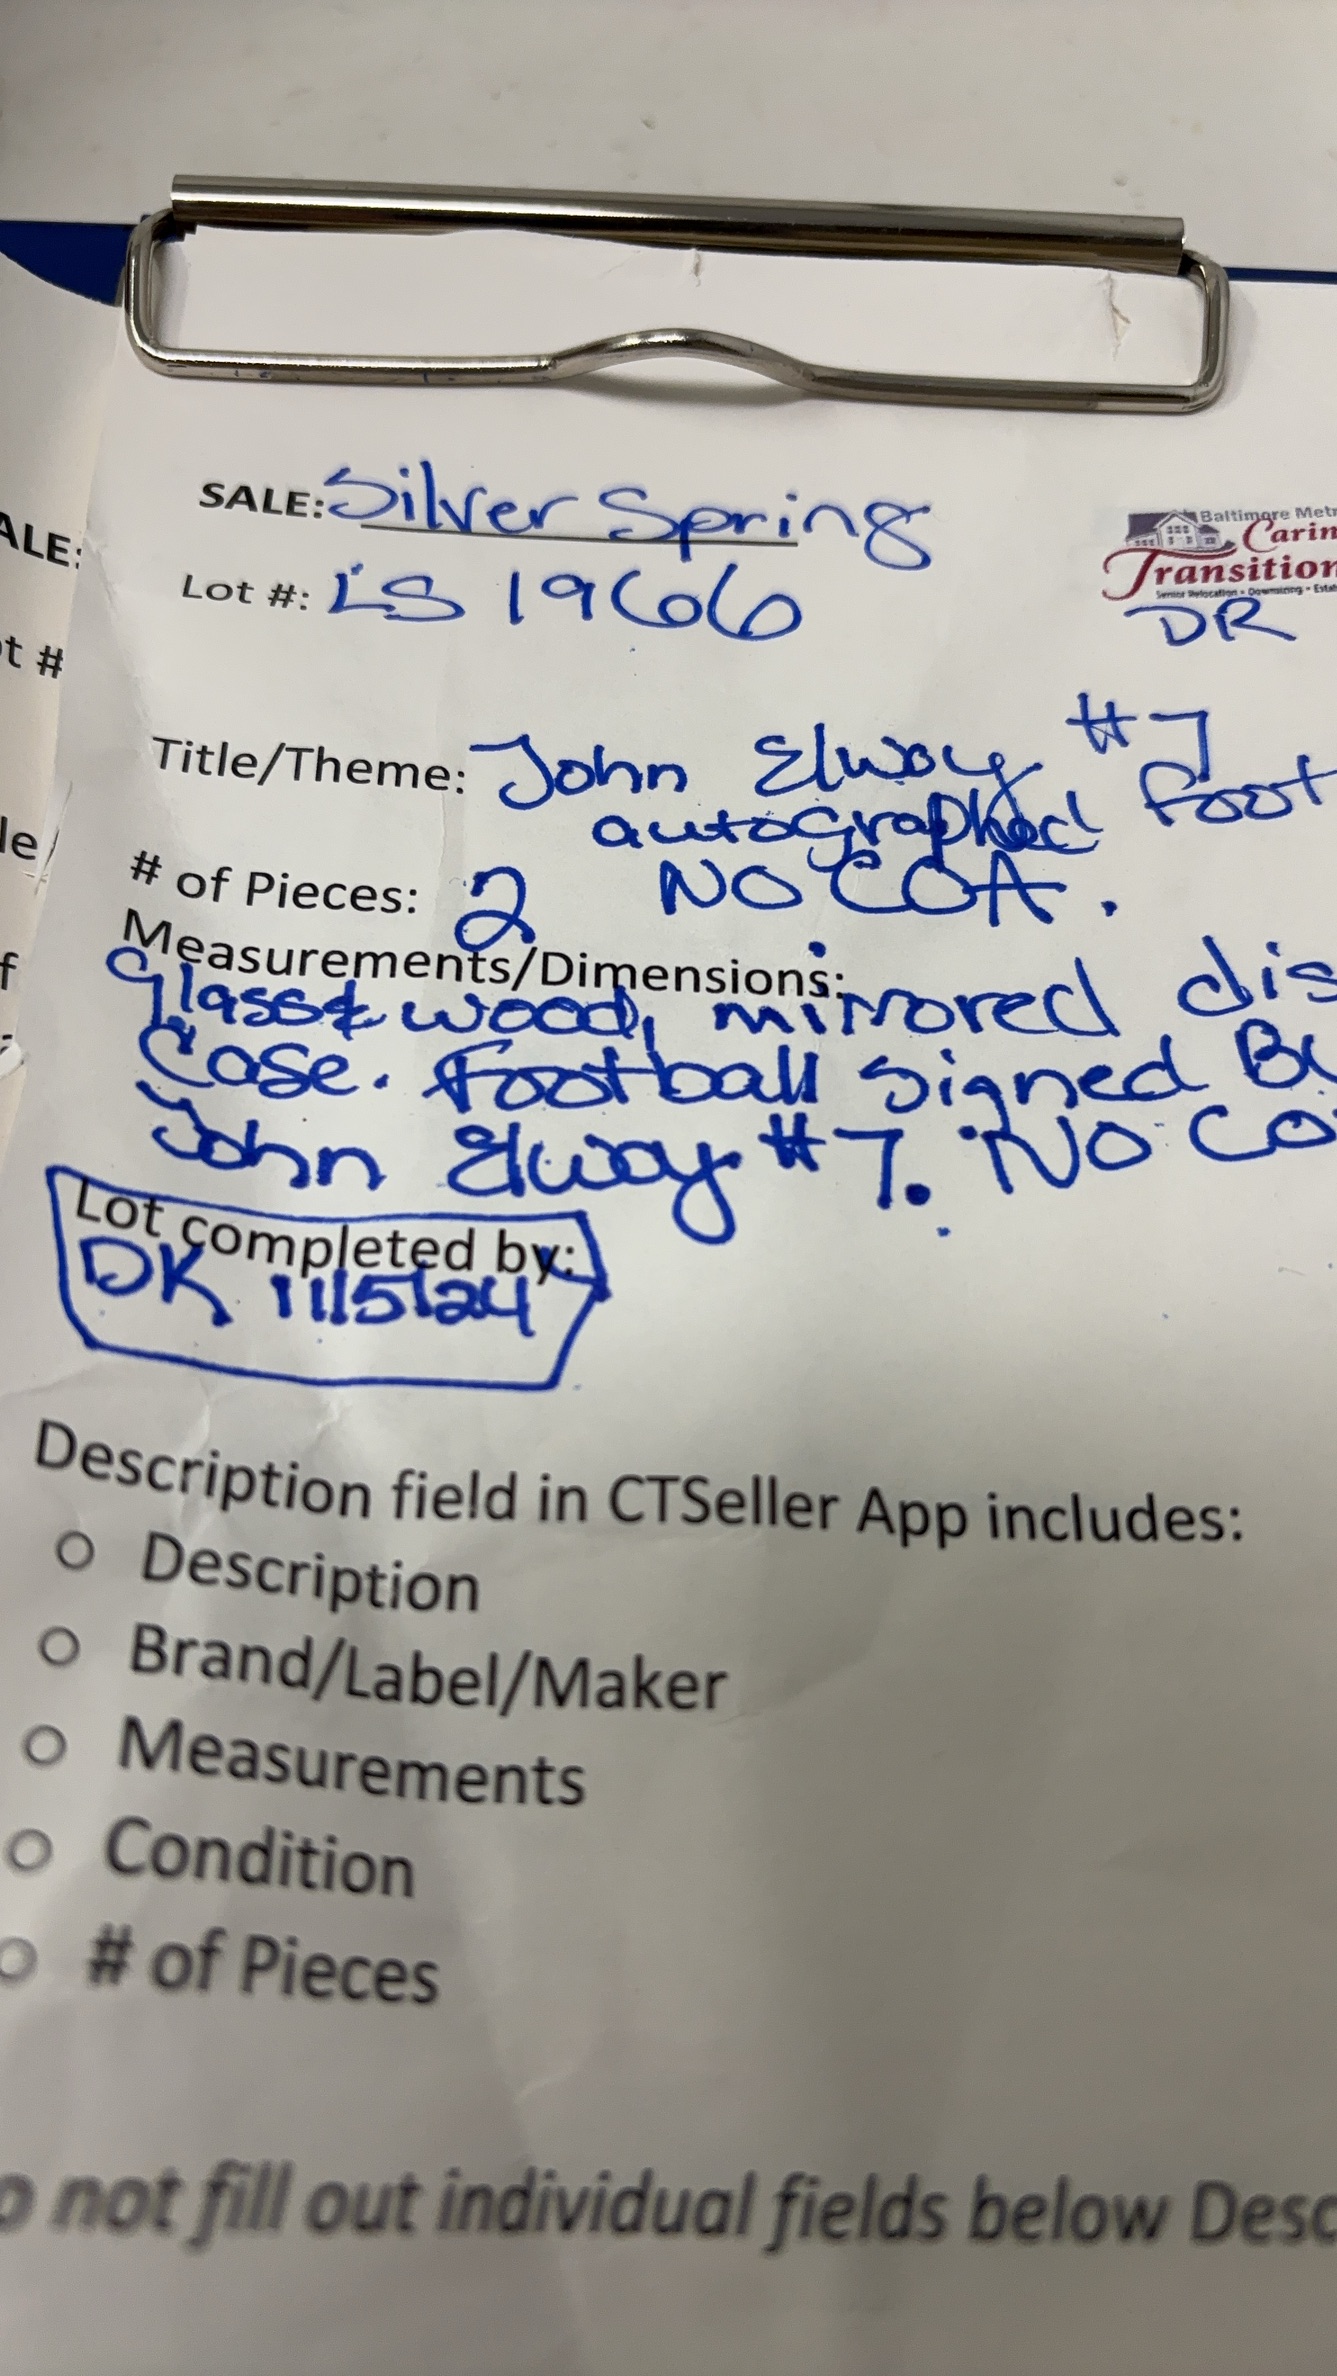 SALE: Silver Spring
Baltimore Metr
Carin
Transition
Senior Relocation • Downsizing • Estat
DR
Lot #: LS 1966
Title/Theme: John Elway #7
autographed Foot
# of Pieces: 2 NO COA.
Measurements/Dimensions:
Glass & wood, mirrored dis
Case. Football signed By
John Elway #7. NO CO
Lot completed by:
DK 11/5/24
Description field in CTSeller App includes:
o Description
o Brand/Label/Maker
o Measurements
o Condition
o # of Pieces
o not fill out individual fields below Desc
ALE:
ot #
le/
f